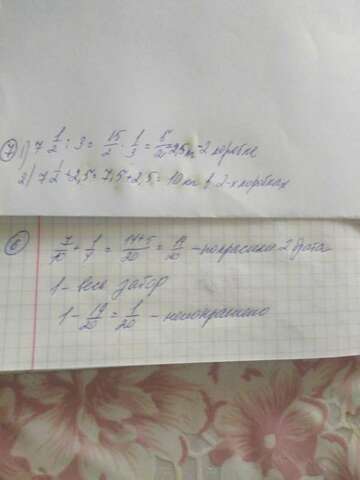 ⑦ 1) 7 1/2 : 3 = 15/2 · 1/3 = 5/2 = 2,5 кг - 2 коробке
2) 7 1/2 + 2,5 = 7,5 + 2,5 = 10 кг в 2-х коробках
⑥ 7/10 + 1/4 = 14+5/20 = 19/20 - покрасили 2 брата
1 - весь забор
1 - 19/20 = 1/20 - непокрашено